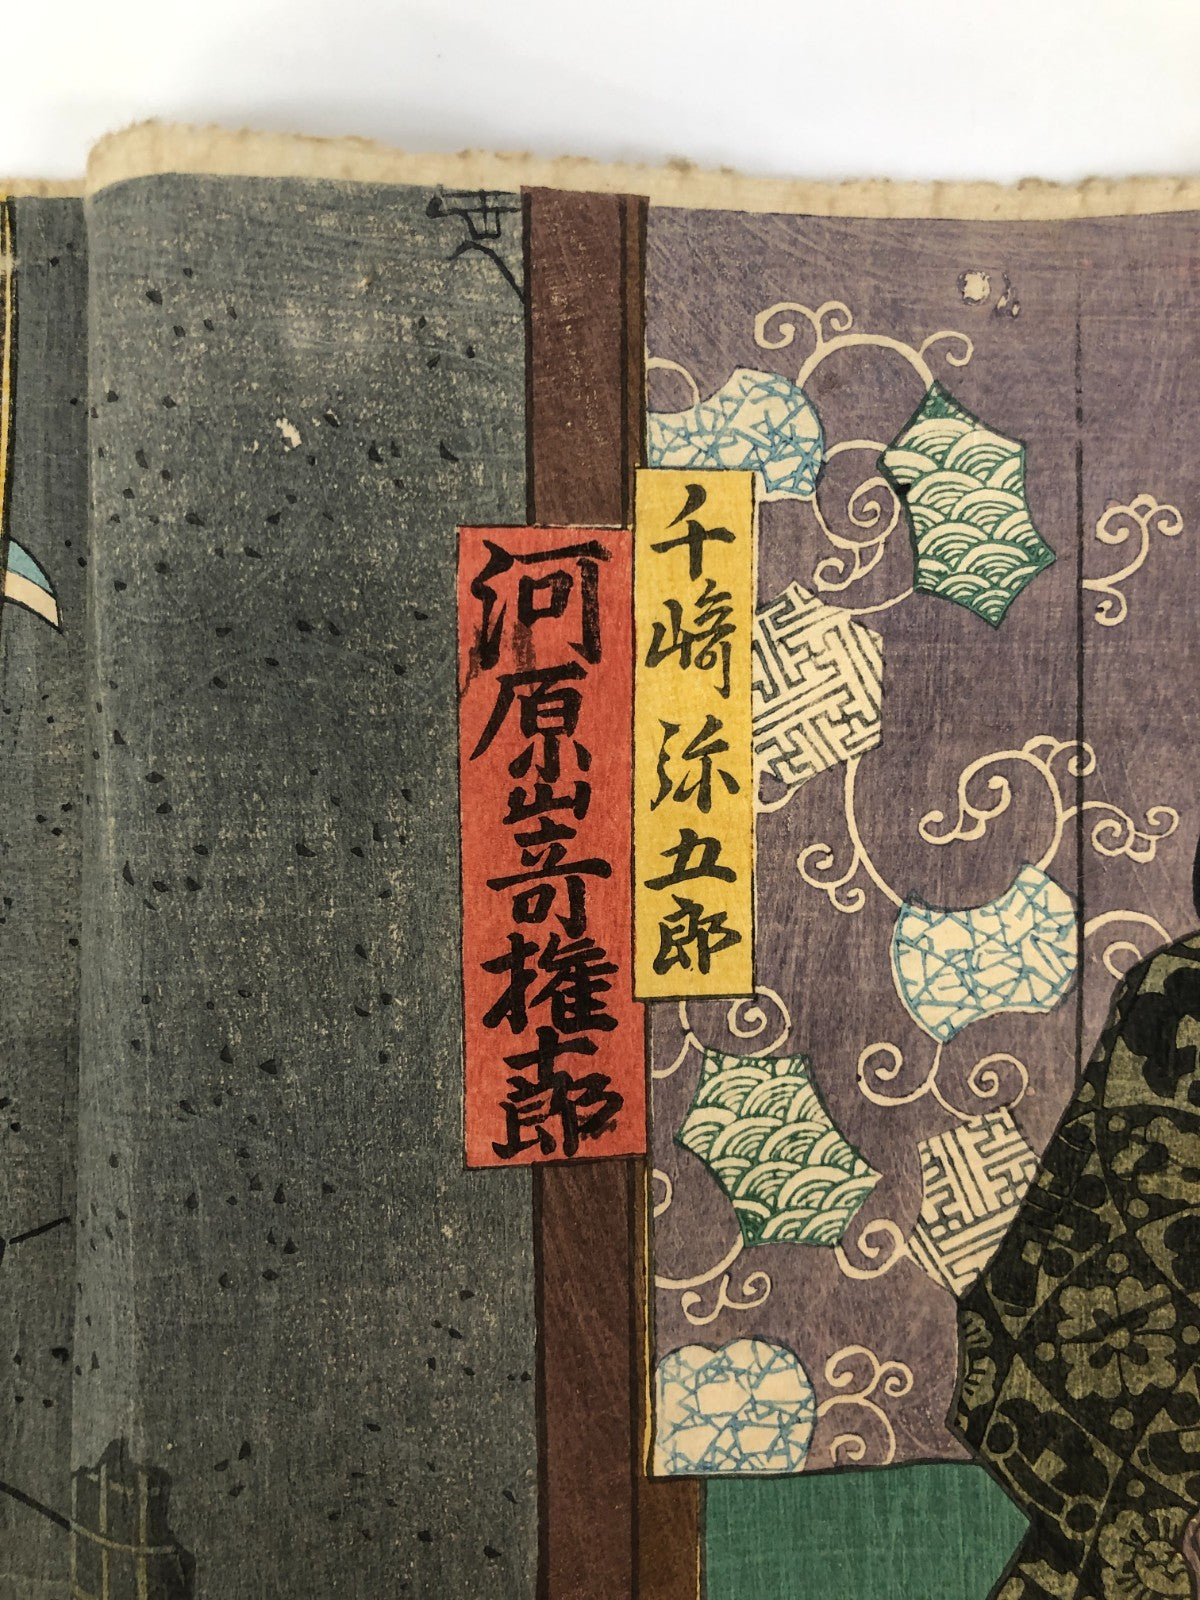 千崎弥五郎
河原崎権十郎